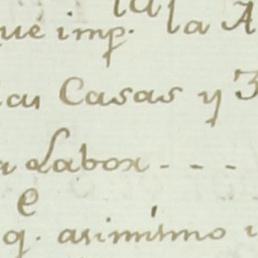 que imp. la A
las Casas y
a Labor - - -
e
q. asimismo